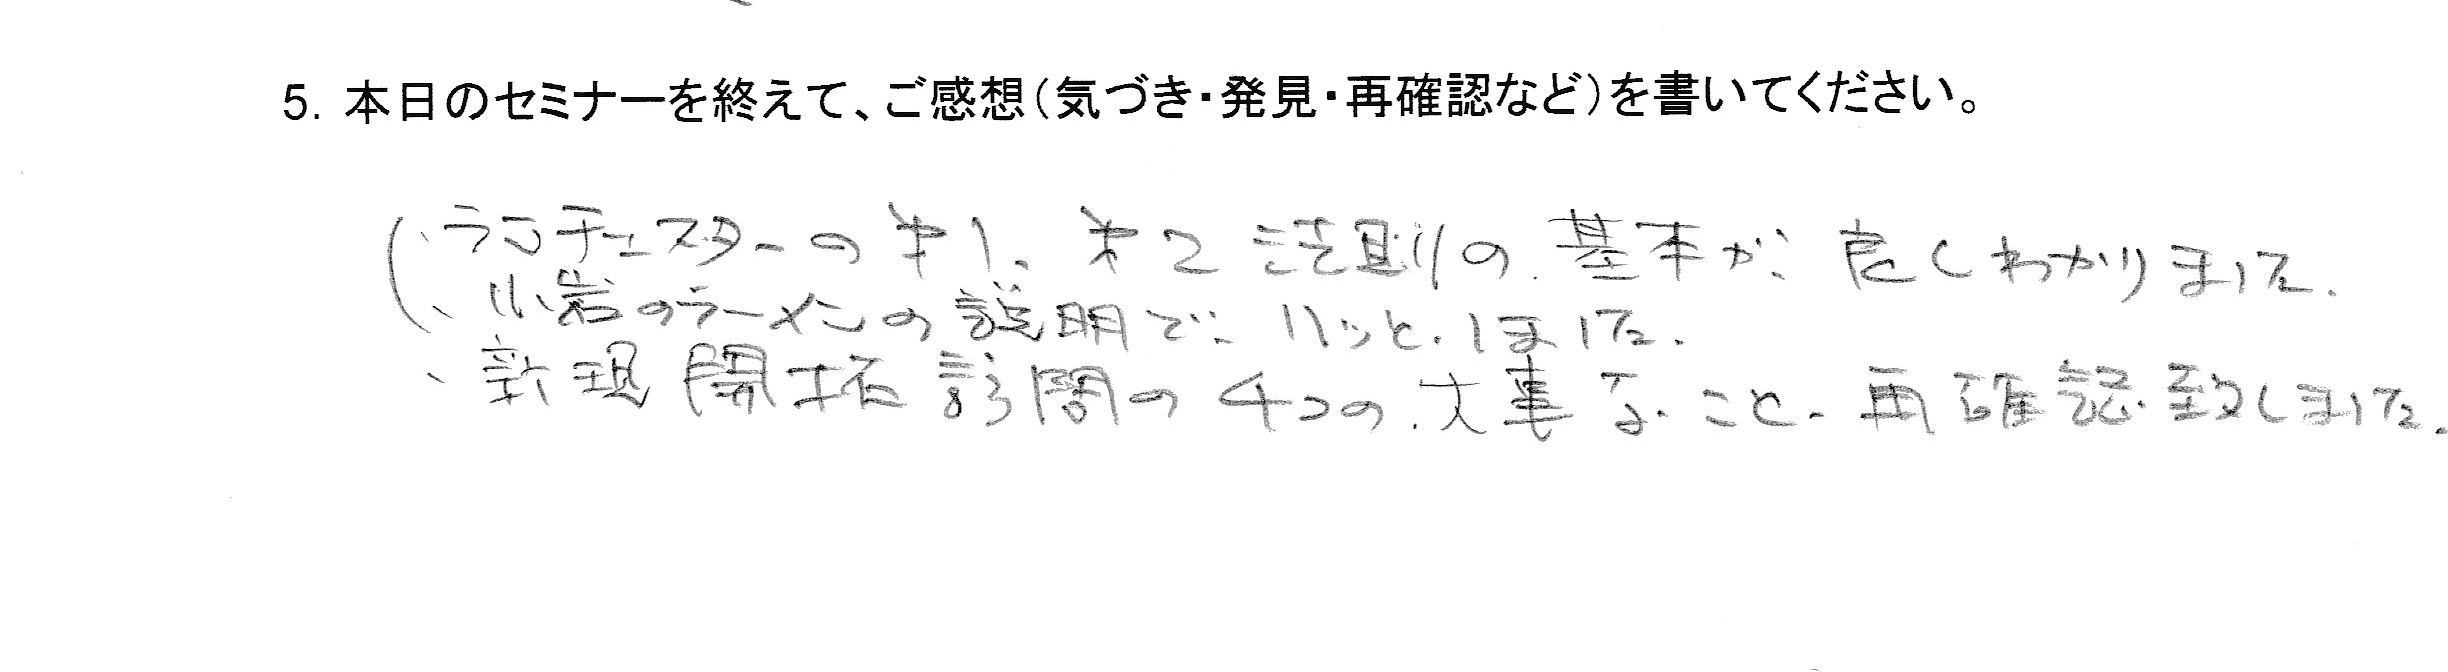 5. 本日のセミナーを終えて、ご感想(気づき・発見・再確認など)を書いてください。
・ランチェスターの㐧1、㐧2法則の基本が良くわかりました。
・小岩のラーメンの説明で、ハッとしました。
・新規開拓訪問の4つの大事なこと、再確認致しました。